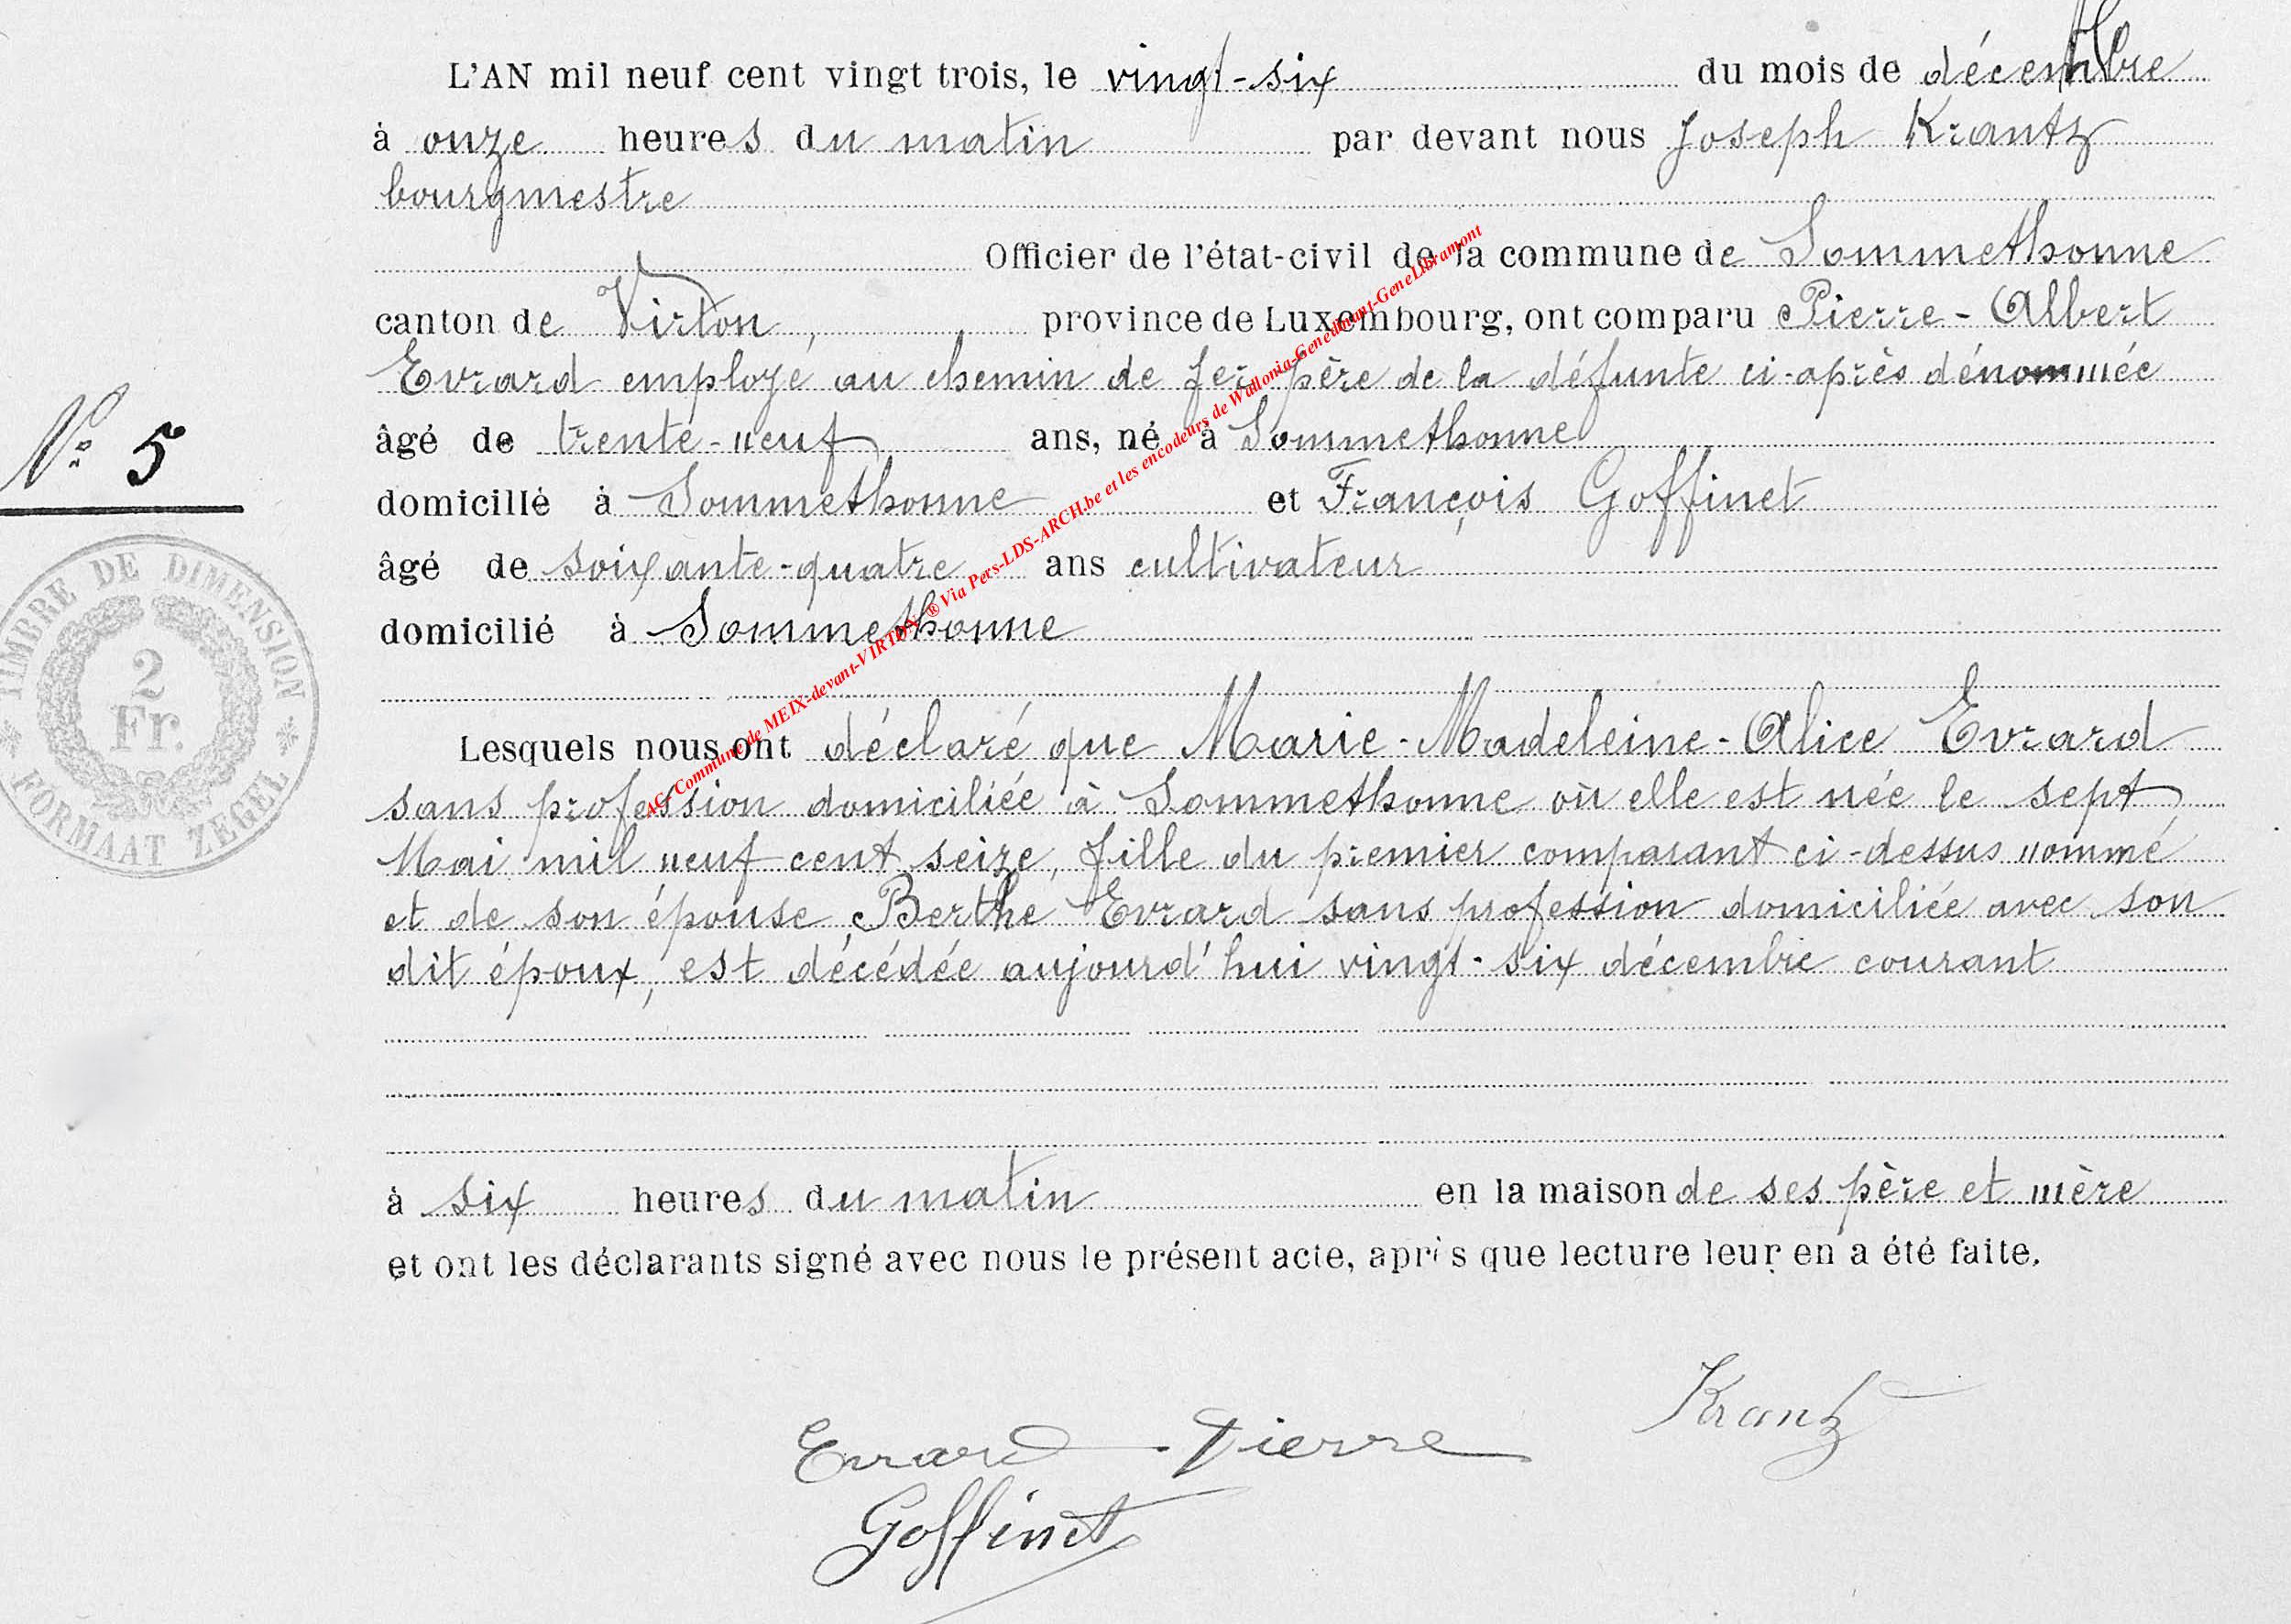 L'AN mil neuf cent vingt trois, le vingt-six du mois de décembre
à onze heures du matin par devant nous Joseph Krantz
bourgmestre
Officier de l'état-civil de la commune de Sommethonne
canton de Virton, province de Luxembourg, ont comparu Pierre-Albert
Evrard employé au chemin de fer père de la défunte ci-après dénommée
âgé de trente-neuf ans, né à Sommethonne
N° 5
domicilié à Sommethonne et François Goffinet
âgé de soixante-quatre ans cultivateur
domicilié à Sommethonne
TIMBRE DE DIMENSION
2
Fr.
FORMAAT ZEGEL
AC. Commune de MEIX-devant-VIRTON ® Via Pers-LDS-ARCH.be et les encodeurs de Wallonia-Genedinant-GeneLibramont
Lesquels nous ont déclaré que Marie-Madeleine-Alice Evrard
sans profession domiciliée à Sommethonne où elle est née le sept
Mai mil neuf cent seize, fille du premier comparant ci-dessus nommé
et de son épouse Berthe Evrard sans profession domiciliée avec son
dit époux, est décédée aujourd'hui vingt-six décembre courant
à six heures du matin en la maison de ses père et mère
et ont les déclarants signé avec nous le présent acte, après que lecture leur en a été faite.
Krantz
Evrard Pierre
Goffinet